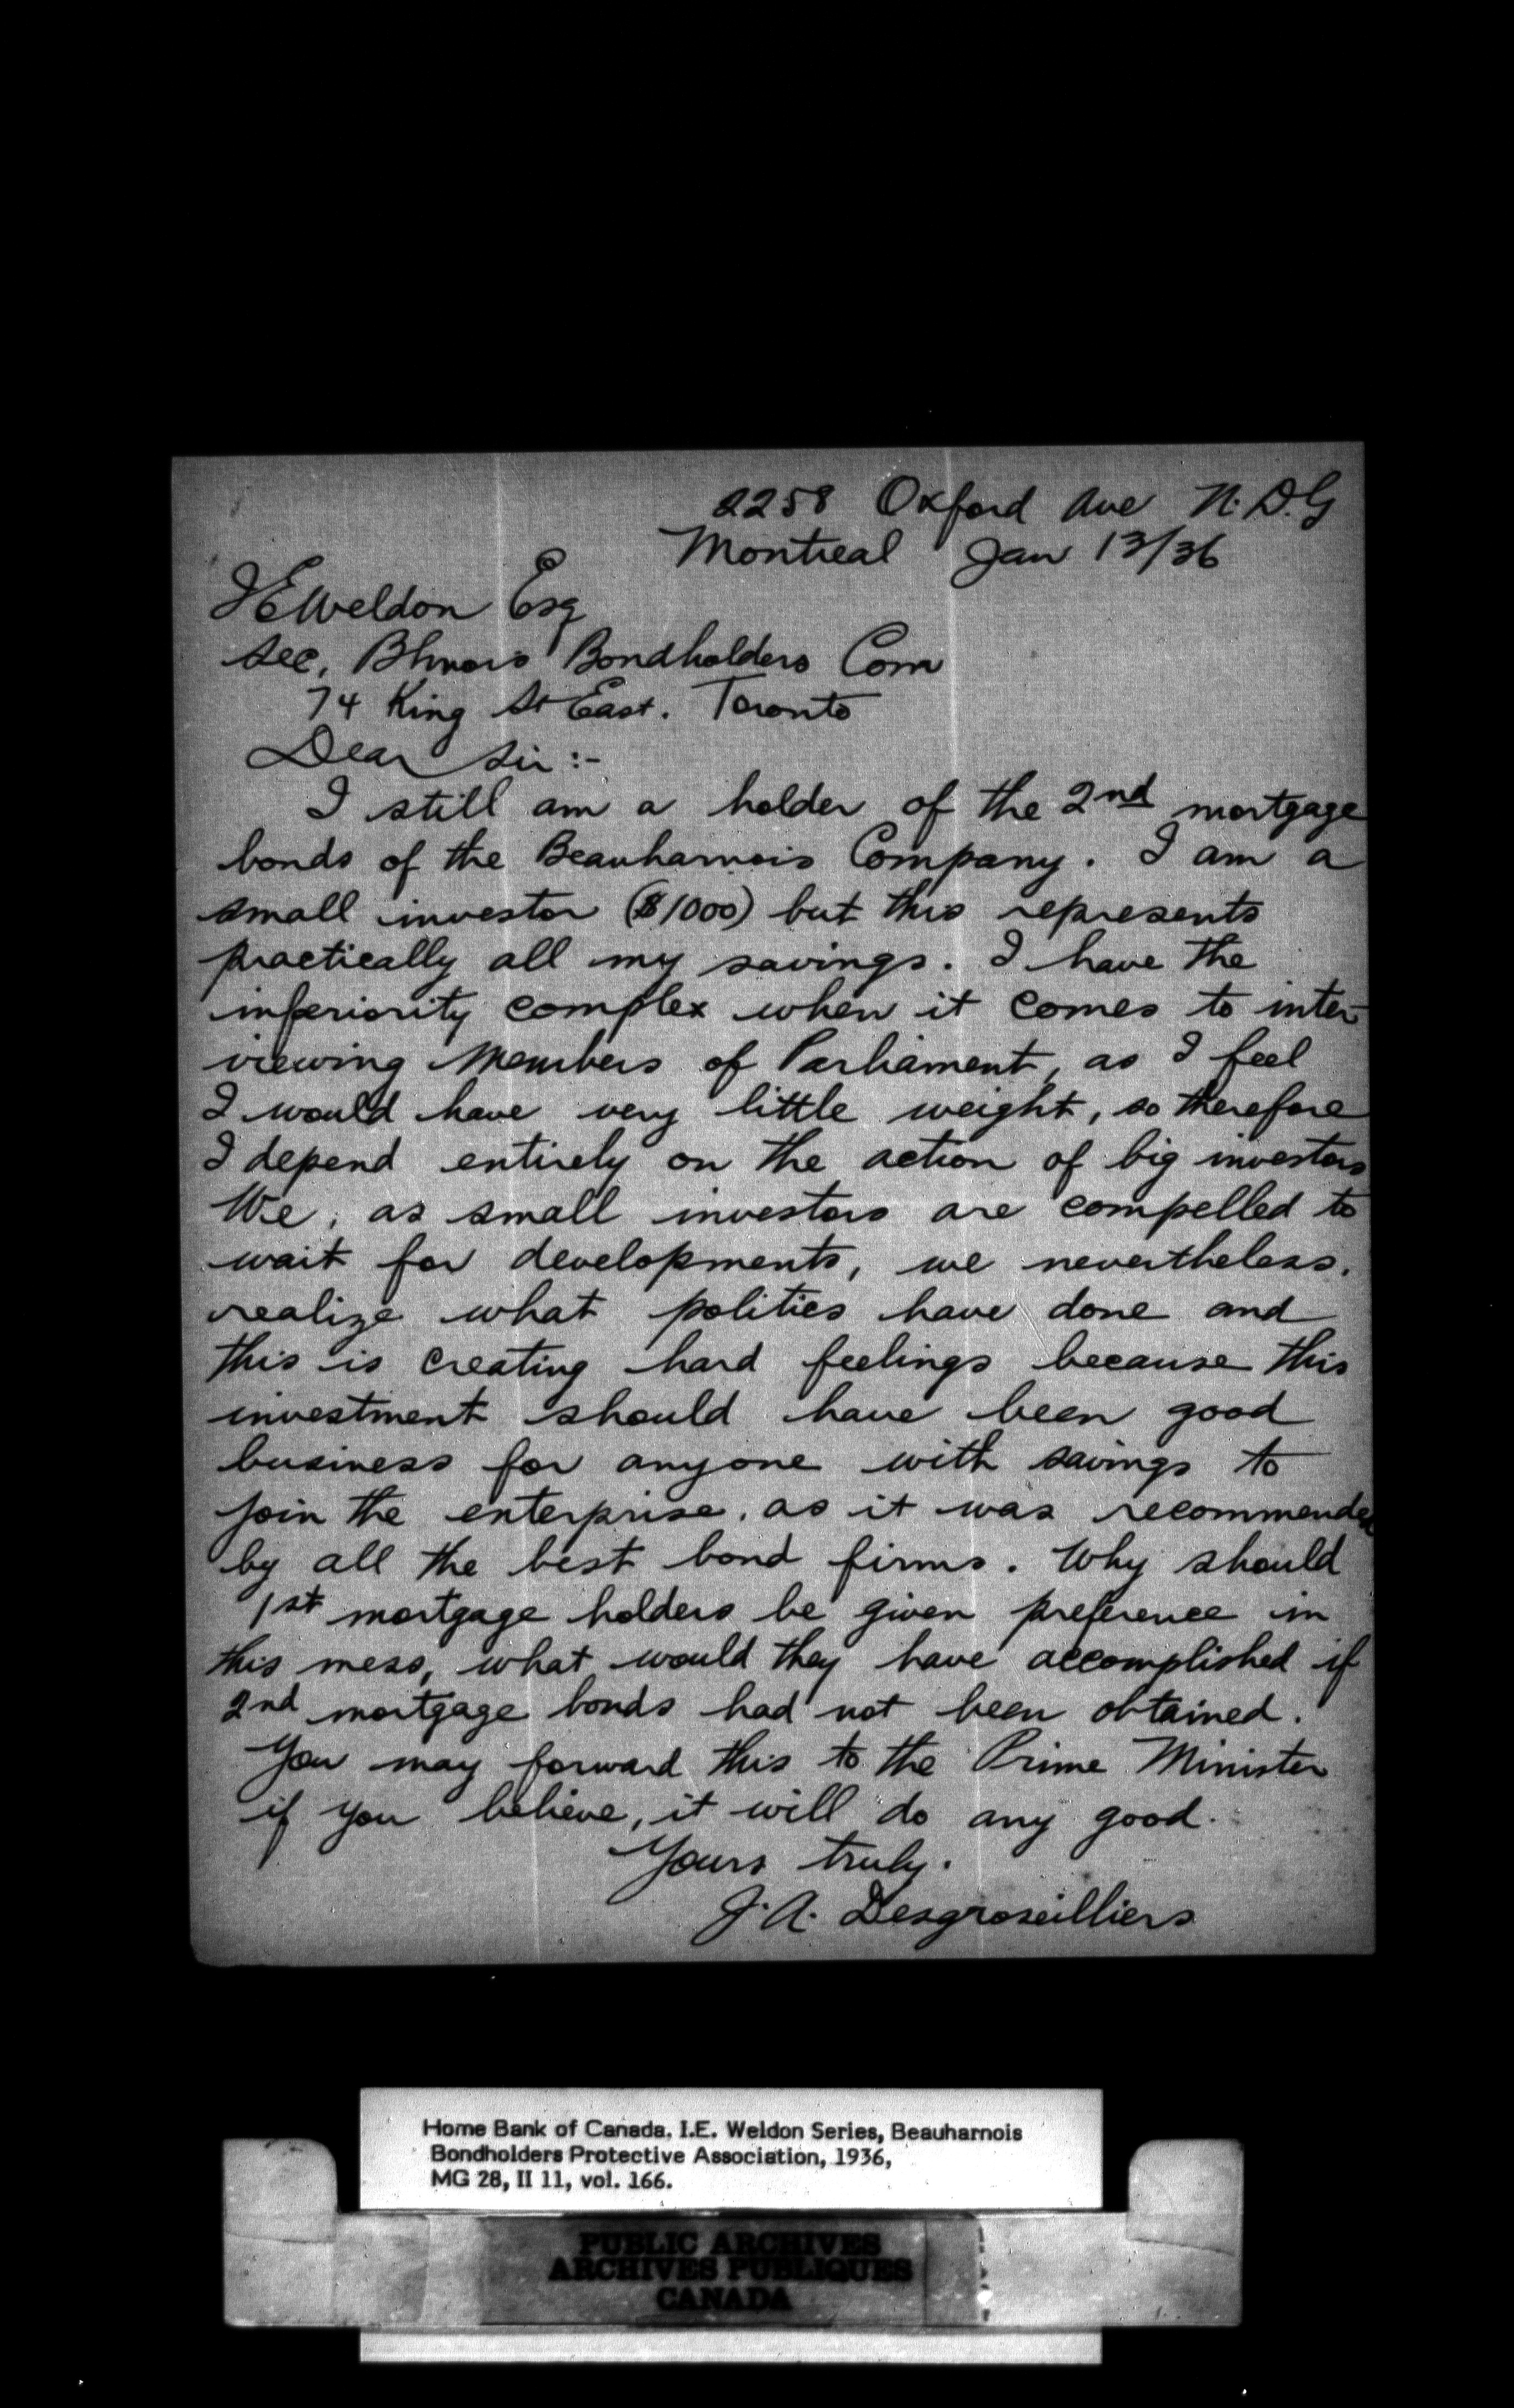 2258 Oxford Ave N.D.G
Montreal Jan 13/36
I E Weldon Esq
Sec, Bhnois Bondholders Com
74 King St East. Toronto
Dear Sir :-
I still am a holder of the 2nd mortgage
bonds of the Beauharnois Company. I am a
small investor ($1000) but this represents
practically all my savings. I have the
inferiority complex when it comes to inter-
viewing Members of Parliament, as I feel
I would have very little weight, so therefore
I depend entirely on the action of big investors
We, as small investors are compelled to
wait for developments, we nevertheless,
realize what politics have done and
this is creating hard feelings because this
investment should have been good
business for anyone with savings to
join the enterprise, as it was recommended
by all the best bond firms. Why should
1st mortgage holders be given preference in
this mess, what would they have accomplished if
2nd mortgage bonds had not been obtained.
You may forward this to the Prime Minister
if you believe, it will do any good.
Yours truly.
J. A. Desgroseilliers
Home Bank of Canada, I.E. Weldon Series, Beauharnois
Bondholders Protective Association, 1936,
MG 28, II 11, vol. 166.
PUBLIC ARCHIVES
ARCHIVES PUBLIQUES
CANADA